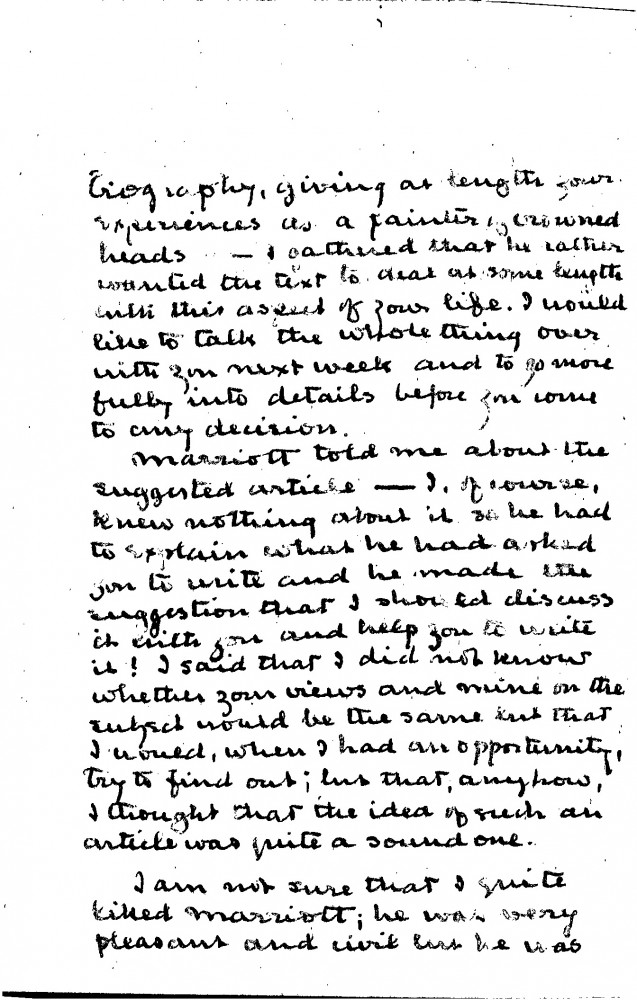 biography, giving at length your
experiences as a painter of crowned
heads — I gathered that he rather
wanted the text to deal at some length
with this aspect of your life. I would
like to talk the whole thing over
with you next week and to go more
fully into details before you come
to any decision.
Marriott told me about the
suggested article — I, of course,
knew nothing about it so he had
to explain what he had asked
you to write and he made the
suggestion that I should discuss
it with you and help you to write
it! I said that I did not know
whether your views and mine on the
subject would be the same but that
I would, when I had an opportunity,
try to find out; but that, anyhow,
I thought that the idea of such an
article was quite a sound one.
I am not sure that I quite
liked Marriott; he was very
pleasant and civil but he was